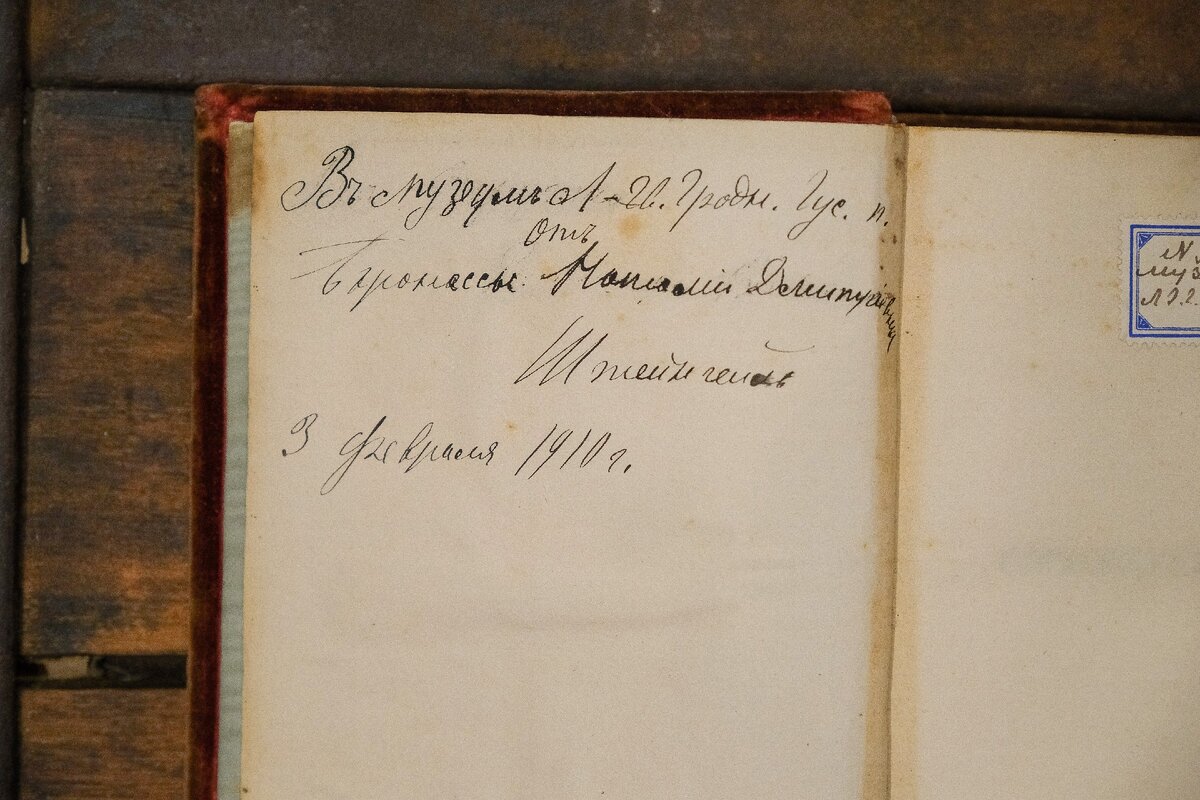 Въ музеумъ Л-Гв. Гродн. Гус. п.
Отъ
Баронессы Наталіи Дмитріевны
Штейнгейль
3 февраля 1910 г.
№
муз